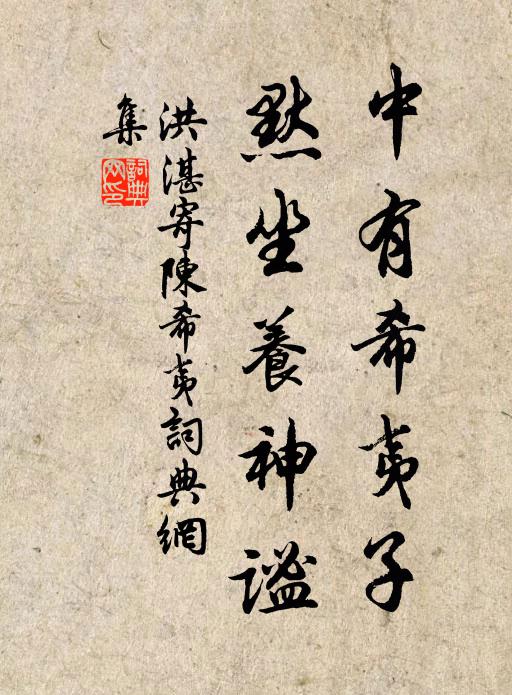 中有希夷子
默坐養神謐
洪湛寄陳希夷詞典網
集
詞典網印